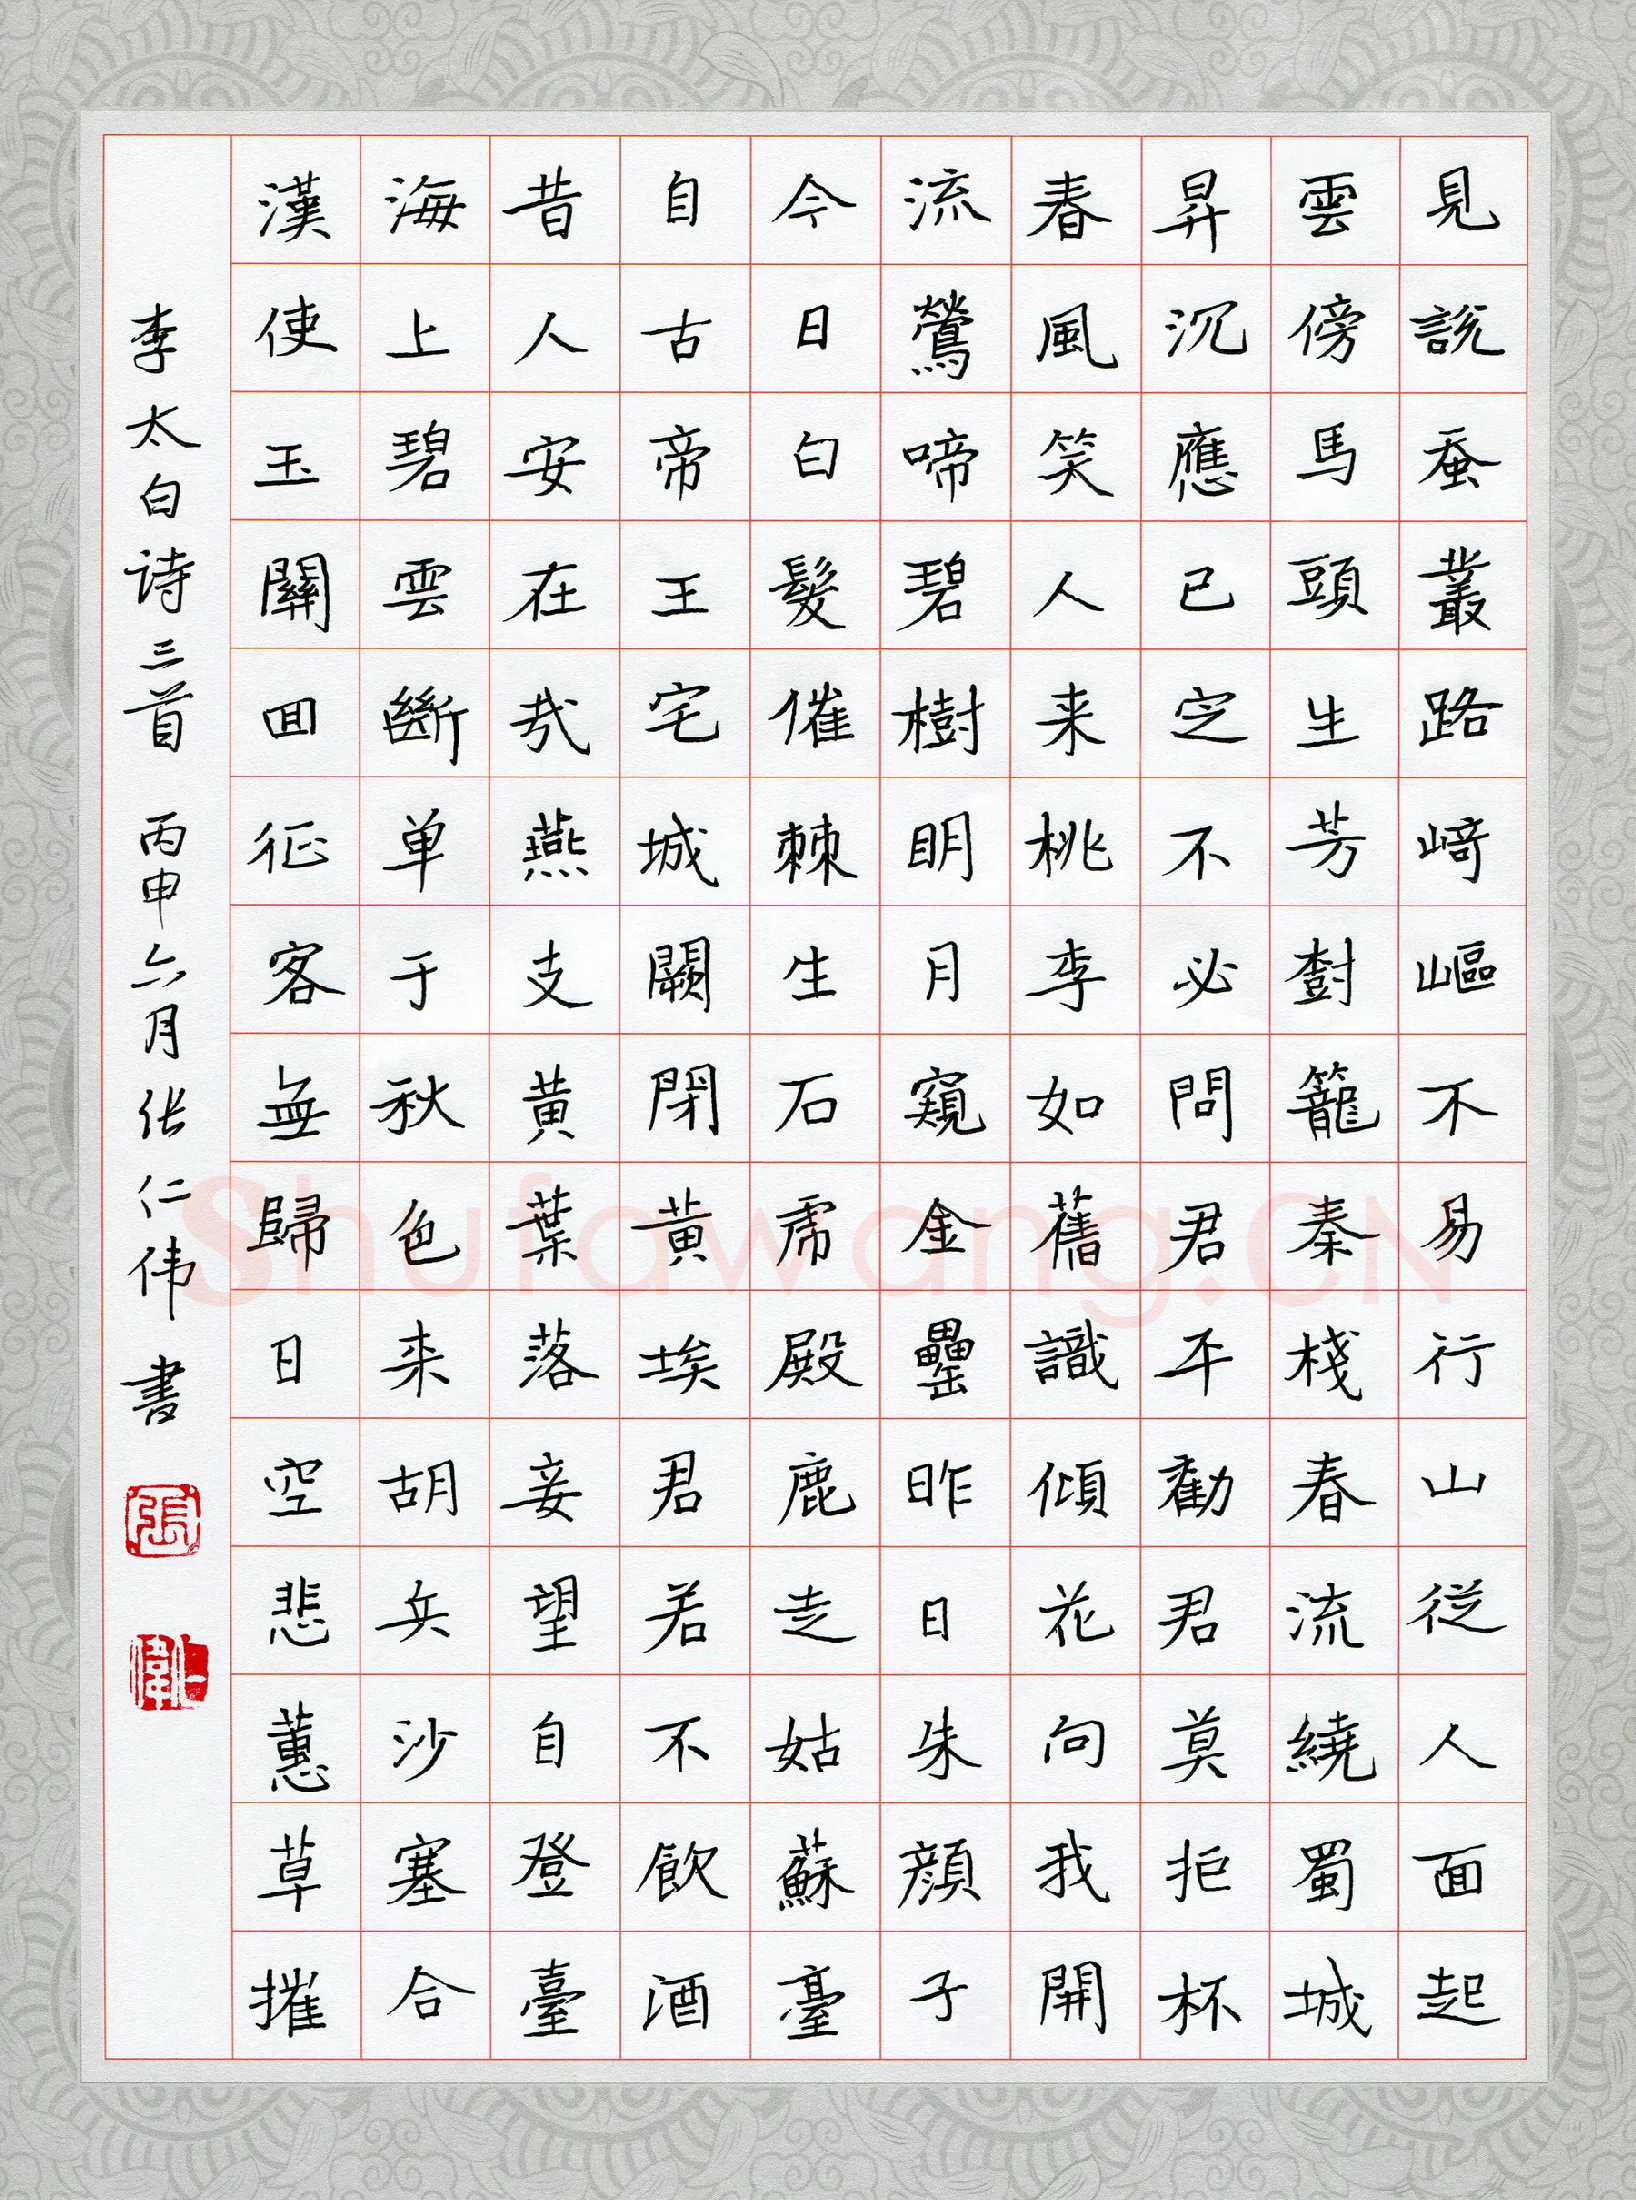 見說蚕叢路崎嶇不易行山従人面起
雲傍馬頭生芳樹籠秦棧春流繞蜀城
昇沉應已定不必問君平勸君莫拒杯
春風笑人来桃李如舊識傾花向我開
流鶯啼碧樹明月窺金罍昨日朱顔子
今日白髮催棘生石虎殿鹿走姑蘇臺
自古帝王宅城闕閉黄埃君若不飲酒
昔人安在哉燕支黄葉落妾望自登臺
海上碧雲斷单于秋色来胡兵沙塞合
漢使玉關回征客無歸日空悲蕙草摧
李太白诗三首 丙申六月张仁伟書
張
仁偉
Shufawang.CN